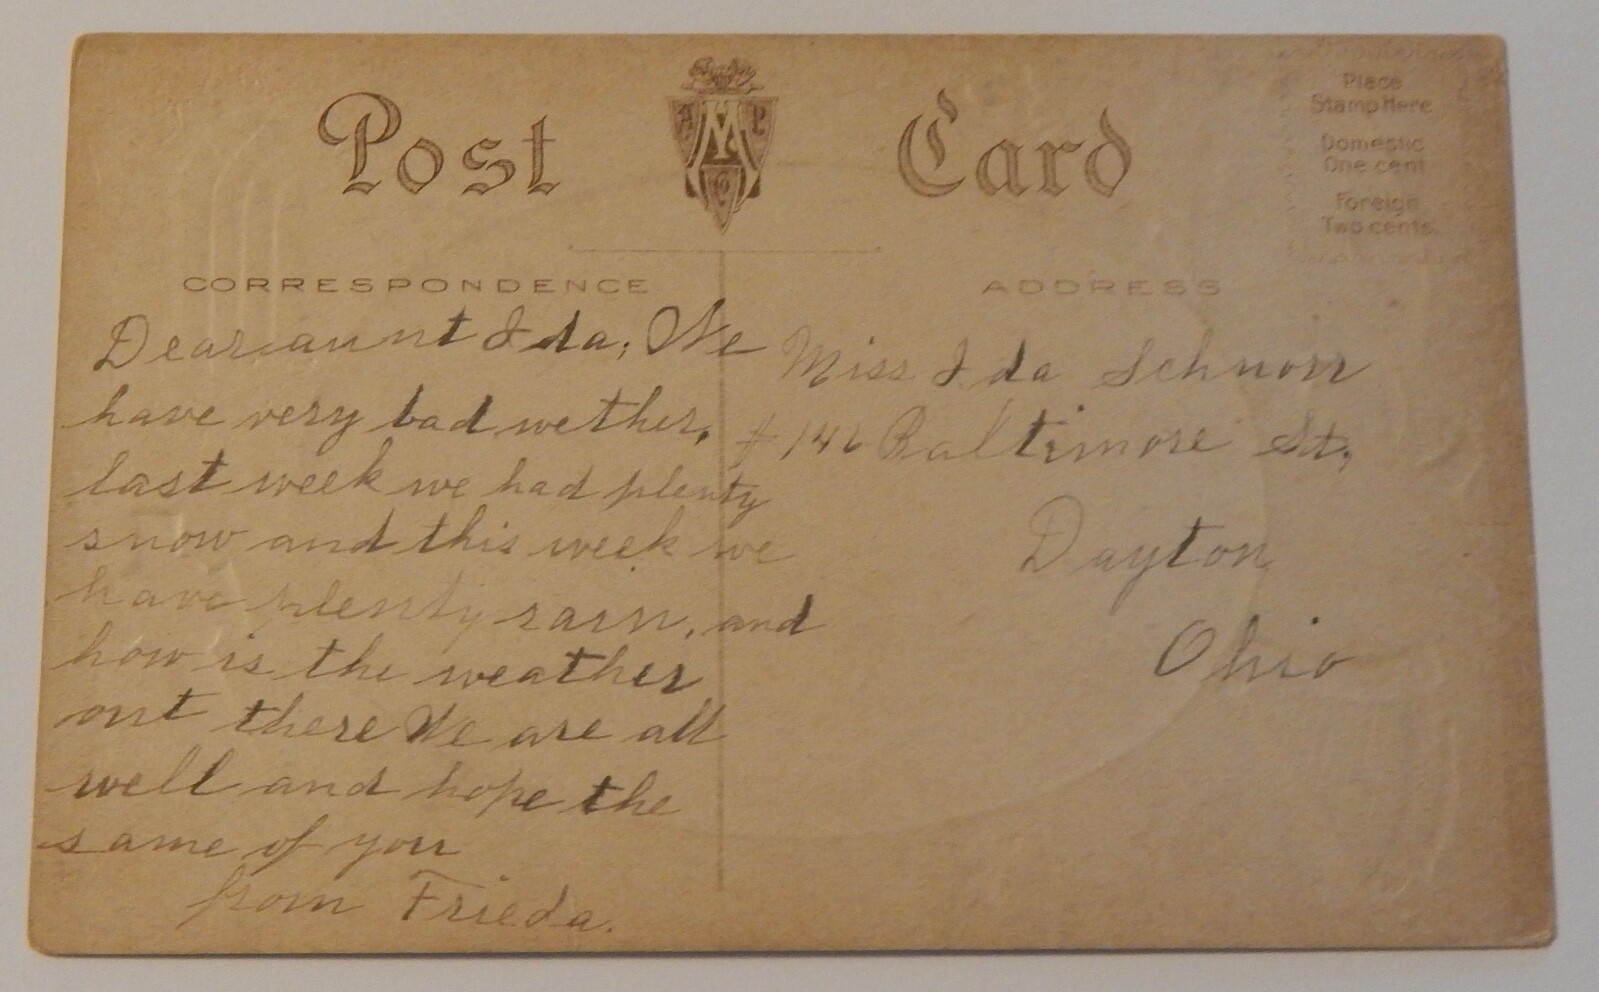 Post Card
A M P
Co
Place
Stamp Here
Domestic
One cent
Foreign
Two cents
CORRESPONDENCE
Dear aunt Ida; We
have very bad wether,
last week we had plenty
snow and this week we
have plenty rain, and
how is the weather
out there We are all
well and hope the
same of you
from Frieda.
ADDRESS
Miss Ida Schnorr
# 142 Baltimore St,
Dayton
Ohio